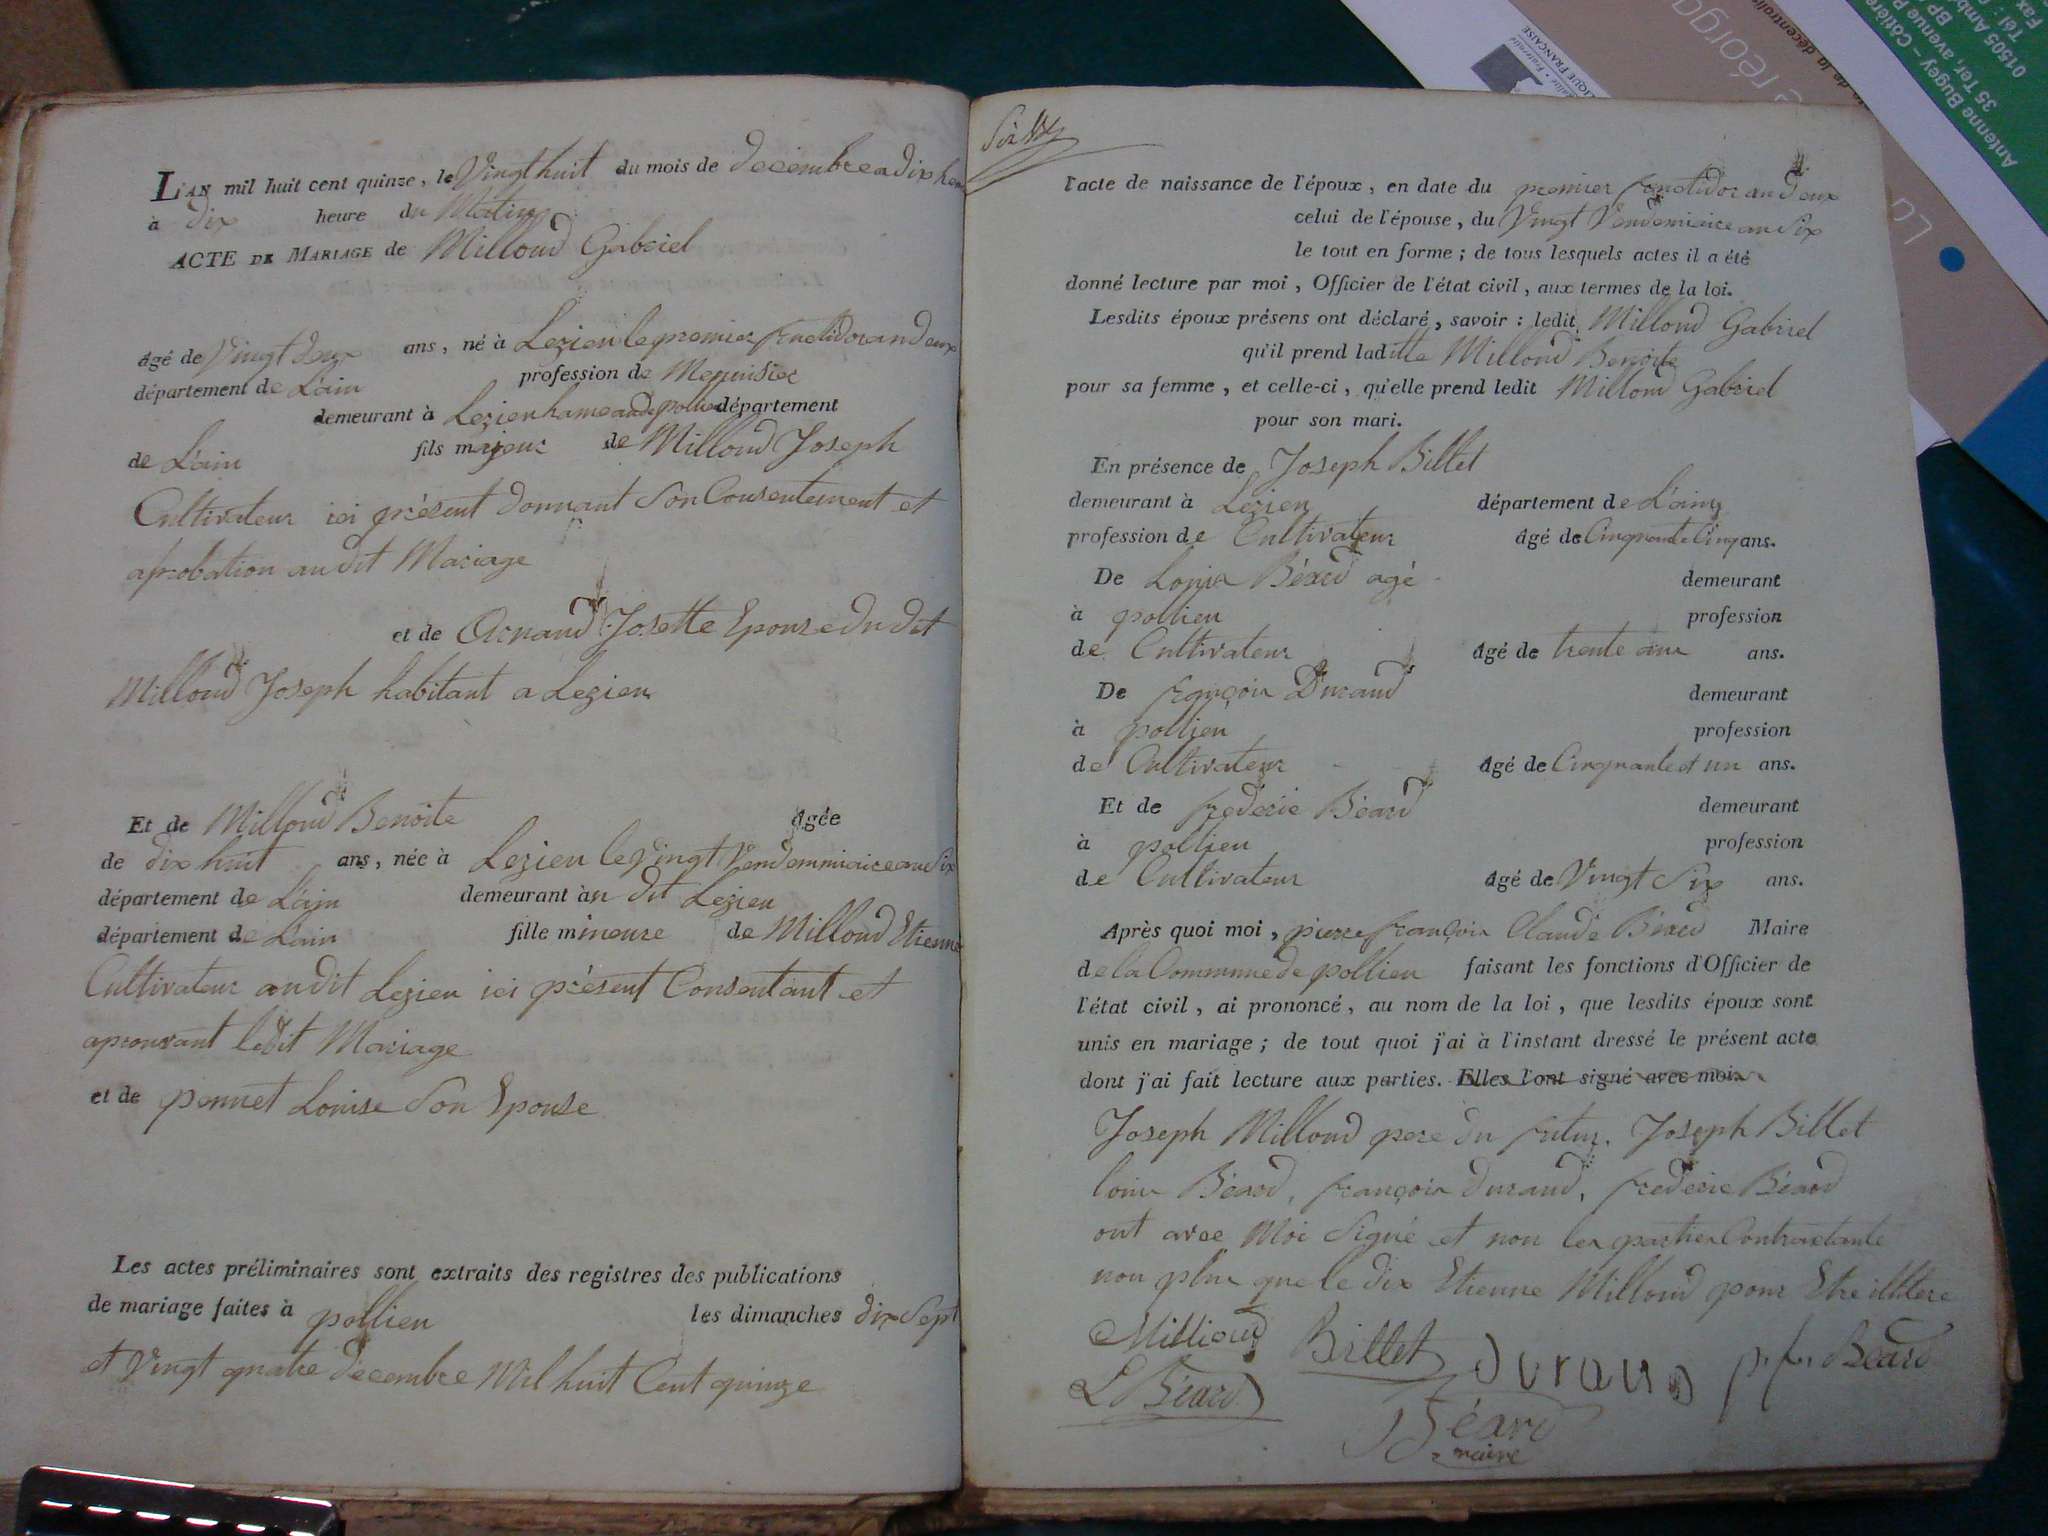 L'AN mil huit cent quinze, le Vingt huit du mois de decembre a dix heu
à dix heure du Matin
ACTE DE MARIAGE de Milloud Gabriel
âgé de Vingt deux ans, né à Lezieu le premier fructidor an deux
département de L'ain profession de Menuisier
demeurant à Lezieu hameau de pollieu département
de L'ain fils majeur de Milloud Joseph
Cultivateur ici présent donnant Son Consentement et
aprobation au dit Mariage
et de Arnaud Josette Epouse du dit
Milloud Joseph habitant a Lezieu
Et de Milloud Benoite âgée
de dix huit ans, née à Lezieu le vingt Vendemmiaire an Six
département de L'ain demeurant à au dit Lezieu
département de L'ain fille mineure de Milloud Etienne
Cultivateur au dit Lezieu ici présent Consentant et
aprouvant ledit Mariage
et de ponnet Louise Son Epouse
Les actes préliminaires sont extraits des registres des publications
de mariage faites à pollieu les dimanches dix Sept
et Vingt quatre decembre Mil huit Cent quinze
l'acte de naissance de l'époux, en date du premier fructidor an deux
celui de l'épouse, du Vingt Vendemiaire an Six
le tout en forme; de tous lesquels actes il a été
donné lecture par moi, Officier de l'état civil, aux termes de la loi.
Lesdits époux présens ont déclaré, savoir: ledit Milloud Gabriel
qu'il prend laditte Milloud Benoite
pour sa femme, et celle-ci, qu'elle prend ledit Milloud Gabriel
pour son mari.
En présence de Joseph Billet
demeurant à Lezieu département de L'ain
profession de Cultivateur âgé de Cinquante Cinq ans.
De Louis Béard agé demeurant
à pollieu profession
de Cultivateur âgé de trente ans ans.
De françois Durand demeurant
à pollieu profession
de Cultivateur âgé de Cinquante et un ans.
Et de frederic Béard demeurant
à pollieu profession
de Cultivateur âgé de Vingt Six ans.
Après quoi moi, pierre françois Claude Béard Maire
de la Commune de pollieu faisant les fonctions d'Officier de
l'état civil, ai prononcé, au nom de la loi, que lesdits époux sont
unis en mariage; de tout quoi j'ai à l'instant dressé le présent acte
dont j'ai fait lecture aux parties. Elles l'ont signé avec moi.
Joseph Milloud pere du futur, Joseph Billet
louis Béard, françois Durand, frederic Béard
ont avec Moi Signé et non les parties Contractante
non plus que le dix Etienne Milloud pour Etre illitere
Millioud Billet Durand p. f. Béard
L Béard
Béard
maire
Antenne Bugey - Côtière
35 Ter, avenue
01505 Amb
Tel
Fax
BP
LIQUE FRANÇAISE
Fraternité
de la décentralis
e réorga